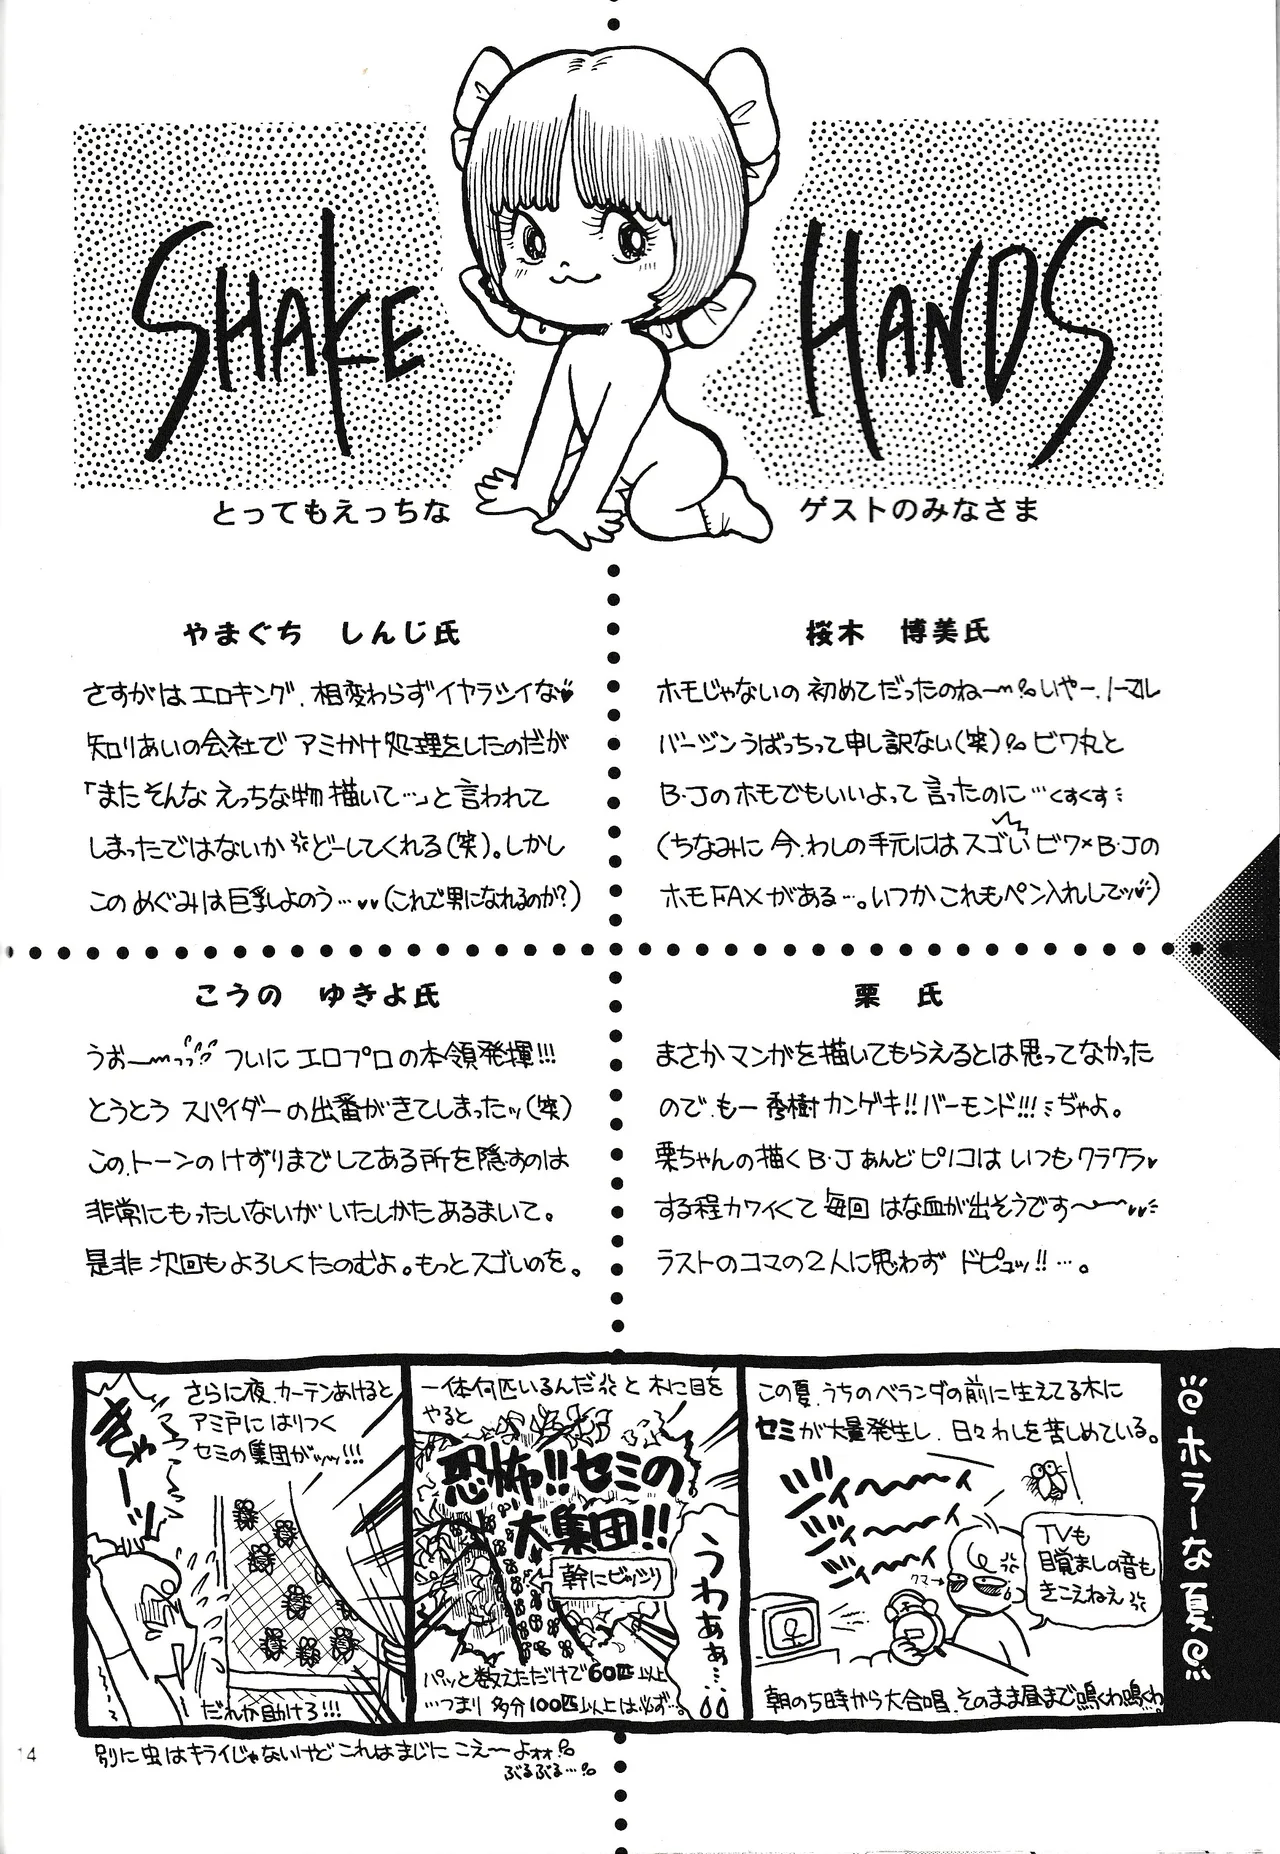 SHAKE HANDS
とってもえっちな
ゲストのみなさま
やまぐち しんじ氏
さすがはエロキング、相変わらずイヤラシイな♥
知りあいの会社でアミかけ処理をしたのだが
「またそんなえっちな物描いて…」と言われて
しまったではないか どーしてくれる(笑)。しかし
このめぐみは巨乳よのう…♥♥(これで男になれるのか?)
桜木 博美氏
ホモじゃないの初めてだったのね〜 いやー、ノーマル
バージンうばっちって申し訳ない(笑) ビワ丸と
B・Jのホモでもいいよって言ったのに…くすくす
(ちなみに今、わしの手元にはスゴいビワ×B・Jの
ホモFAXがある…。いつかこれもペン入れしてッ♥)
こうの ゆきよ氏
うお〜っっ ついにエロプロの本領発揮!!!
とうとうスパイダーの出番がきてしまったッ(笑)
この、トーンのけずりまでしてある所を隠すのは
非常にもったいないがいたしかたあるまいて。
是非次回もよろしくたのむよ。もっとスゴいのを。
栗 氏
まさかマンガを描いてもらえるとは思ってなかった
ので、もー秀樹カンゲキ!!バーモンド!!!ぢゃよ。
栗ちゃんの描くB・Jあんどピノコはいつもクラクラ♥
する程カワイくて毎回はな血が出そうです〜♥♥
ラストのコマの2人に思わずドピュッ!!…。
ホラーな夏
この夏、うちのベランダの前に生えてる木に
セミが大量発生し、日々わしを苦しめている。
ジィ〜〜ィ
ジィ〜〜ィ
ジィ〜〜ィ
TVも
目覚ましの音も
きこえねぇ
クマ→
朝の5時から大合唱、そのまま昼まで鳴くわ鳴くわ。
一体何匹いるんだ と木に目を
やると
恐怖!!セミの
大集団!!
幹にビッシリ
うわぁぁ…
パッと数えただけで60匹以上
…つまり多分100匹以上は必ず…。
さらに夜、カーテンあけると
アミ戸にはりつく
セミの集団がッッ!!!
きゃーッ
だれか助けろ!!!
別に虫はキライじゃないけどこれはまじにこえーよォォ
ぶるぶる…
14